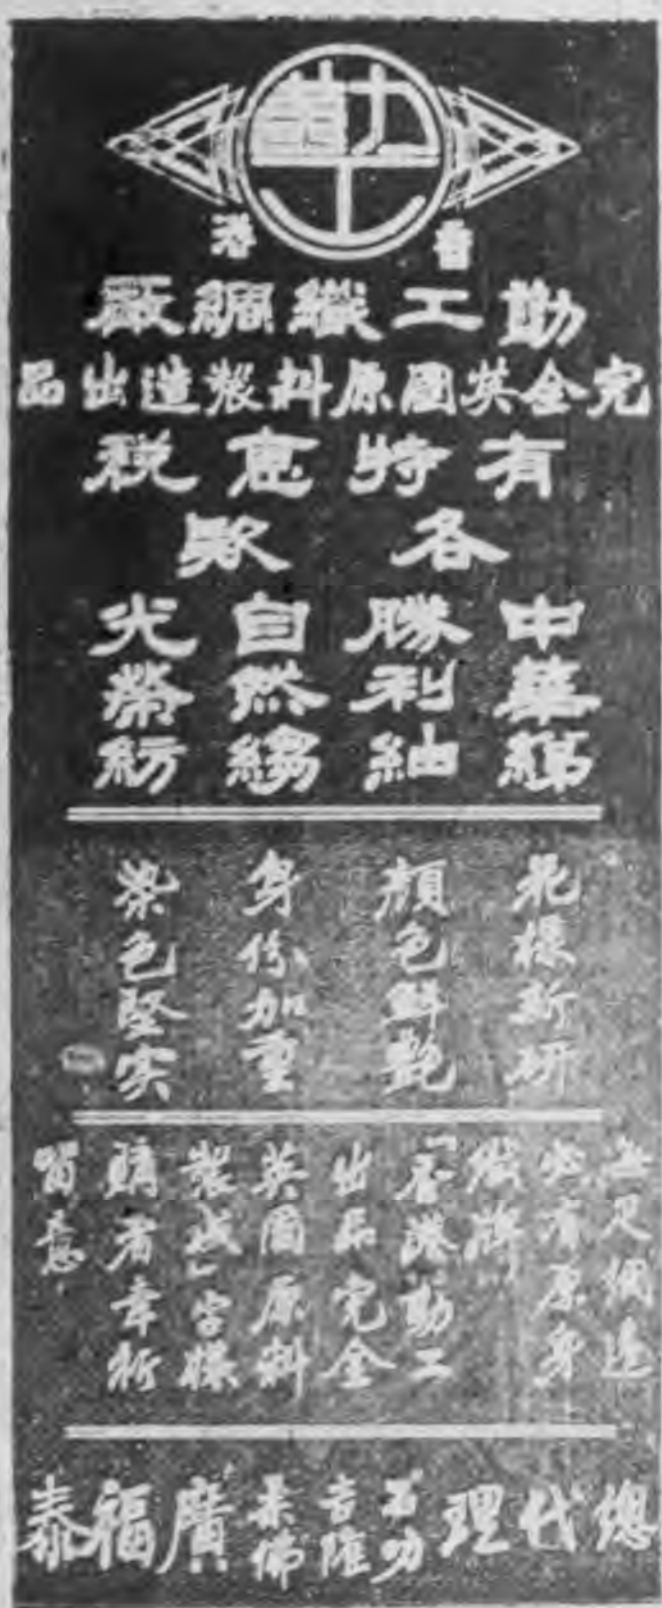 勤工
香港
勤工織綢廠
完全英國原料製造出品
有特惠稅
各欵
中華綈
勝利紬
自然縐
光榮紡
花樣新研
顏色鮮艷
身份加重
染色堅实
每疋綢邊
必有原身
織牌
「香港勤工
出品完全
英國原料
製成」字樣
購者幸祈
留意
總代理
石叻
吉隆
柔佛
廣福泰